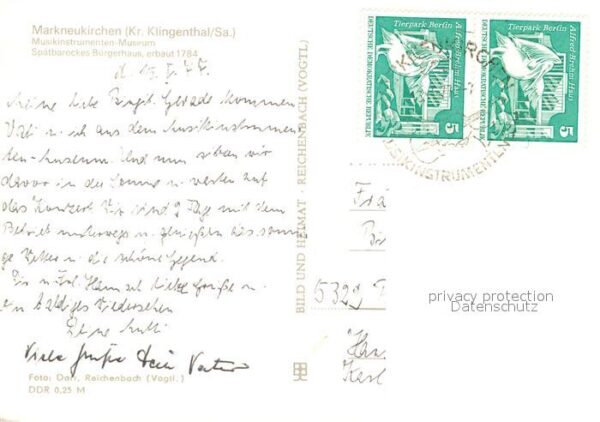 Markneukirchen (Kr. Klingenthal/Sa.)
Musikinstrumenten-Museum
Spätbarockes Bürgerhaus, erbaut 1784
Meine liebe Gerade kommen
Vati u. ich aus dem Musikinstrumen-
ten-Museum. Und nun sitzen wir
davor in der Sonne u. warten auf
das Konzert. Wir sind 2 Tage mit dem
Betrieb unterwegs u. genießen das sonni-
ge Wetter u. die schöne Gegend.
liebe Grüße u.
ein baldiges Wiedersehen
Deine Mutti
Viele Grüße Dein Vater
Foto: Darr, Reichenbach (Vogtl.)
DDR 0,25 M
BILD UND HEIMAT · REICHENBACH (VOGTL)
Tierpark Berlin
Alfred Brehm Haus
DEUTSCHE DEMOKRATISCHE REPUBLIK
5
Tierpark Berlin
Alfred Brehm Haus
DEUTSCHE DEMOKRATISCHE REPUBLIK
5
Frä
5329
privacy protection
Datenschutz